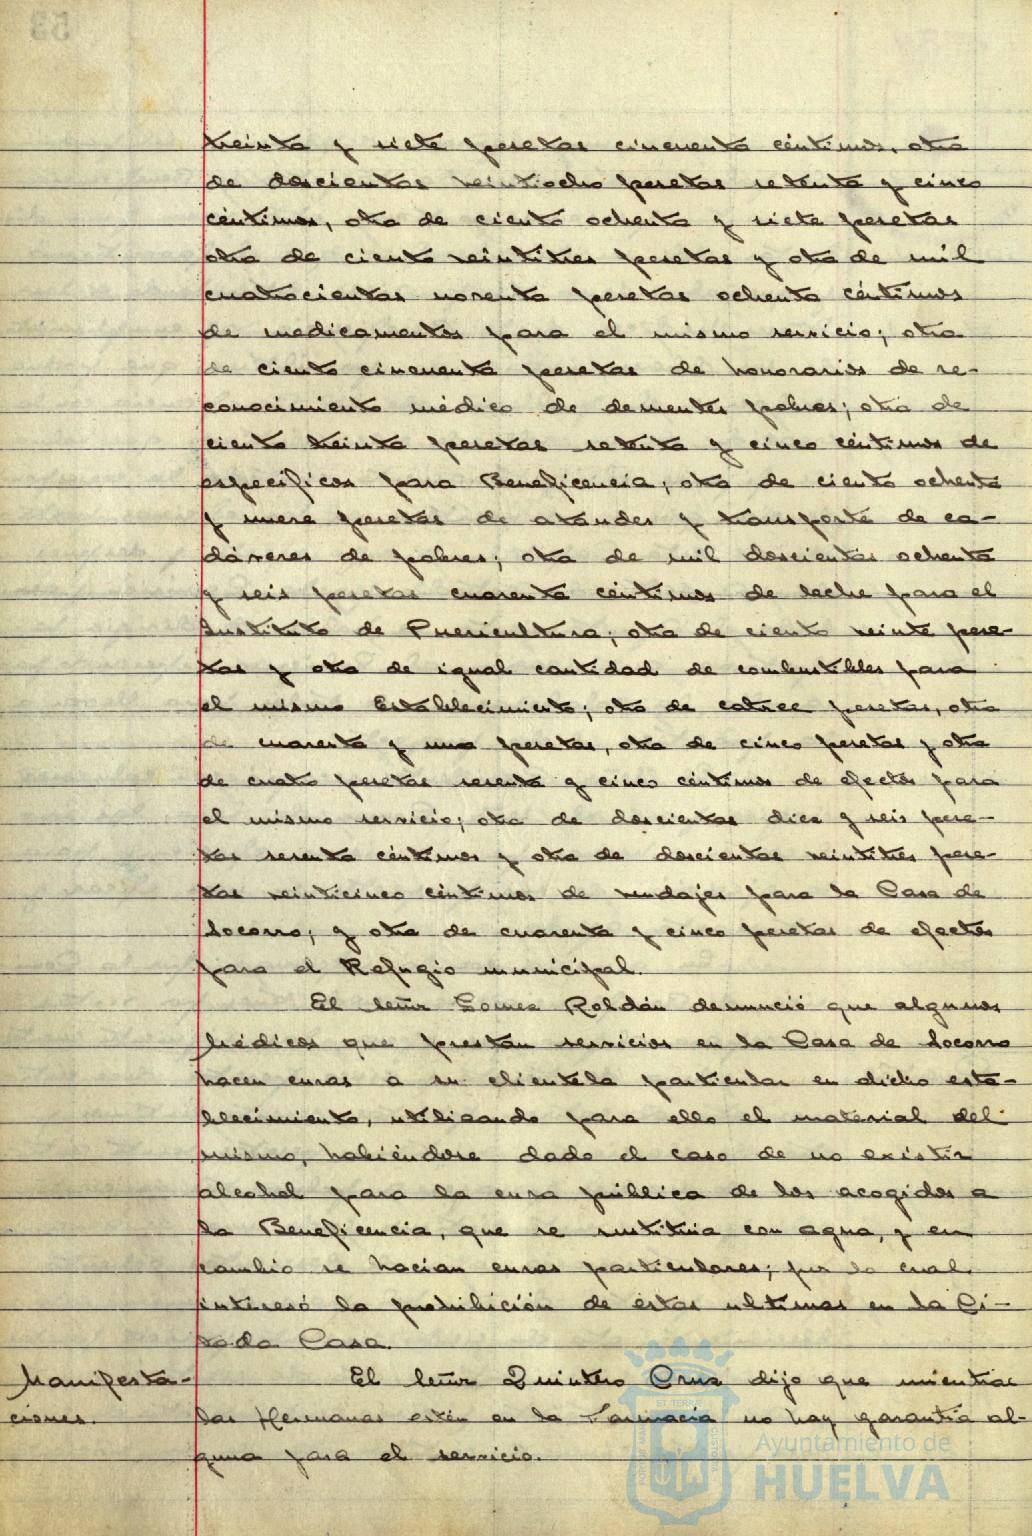 treinta y siete pesetas cincuenta céntimos, otra
de doscientas veintiocho pesetas setenta y cinco
céntimos, otra de ciento ochenta y siete pesetas
otra de ciento veintitres pesetas y otra de mil
cuatrocientas noventa pesetas ochenta céntimos
de medicamentos para el mismo servicio; otra
de ciento cincuenta pesetas de honorarios de re-
conocimiento médico de dementes pobres; otra de
ciento treinta pesetas setenta y cinco céntimos de
específicos para Beneficencia; otra de ciento ochenta
y nueve pesetas de ataudes y transporte de ca-
dáveres de pobres; otra de mil doscientas ochenta
y seis pesetas cuarenta céntimos de leche para el
Instituto de Puericultura; otra de ciento veinte pese-
tas y otra de igual cantidad de combustibles para
el mismo Establecimiento; otra de catorce pesetas, otra
de cuarenta y una pesetas, otra de cinco pesetas y otra
de cuatro pesetas sesenta y cinco céntimos de efectos para
el mismo servicio; otra de doscientas diez y seis pese-
tas sesenta céntimos y otra de doscientas veintitres pese-
tas veinticinco céntimos de vendajes para la Casa de
Socorro; y otra de cuarenta y cinco pesetas de efectos
para el Refugio municipal.
El Señor Gomez Roldán denunció que algunos
Médicos que prestan servicios en la Casa de Socorro
hacen curas a su clientela particular en dicho esta-
blecimiento, utilizando para ello el material del
mismo, habiéndose dado el caso de no existir
alcohol para la cura pública de los acogidos a
la Beneficencia, que se sustituia con agua, y en
cambio se hacian curas particulares; por lo cual
interesó la prohibición de éstas ultimas en la Ci-
tada Casa.
Manifesta- El Señor Quintero Cruz dijo que mientras
ciones. las Hermanas estén en la Farmacia no hay garantía al-
guna para el servicio.
Ayuntamiento de
HUELVA